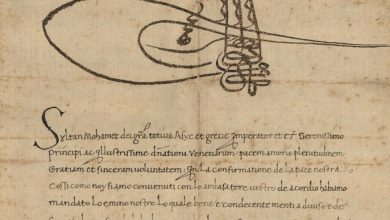 Sultan Mohamet dei gra totius Asye et gretie Imperator et c̃ Serenissimo
principi ac Illustrissime dnationi Venetiarum pacem amoris plenitudinem
Gratiam et sinceram voluntatem. In La confirmatione de la pace nostra
Cossi como noy siamo convenuti con lo ambasatore vostro de acordio habiamo
mandato Lo emino nostro Lo quale bene e condecente menti a duiso e de